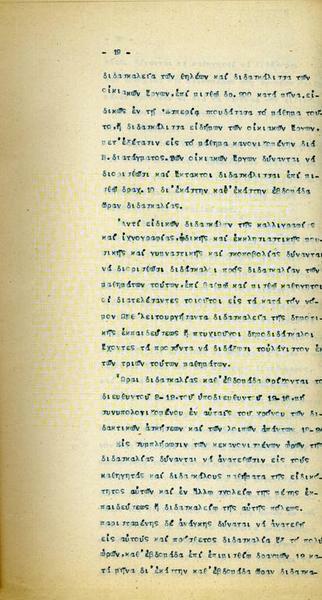 - 19 -
διδασκαλεῖα τῶν θηλέων καί διδασκάλισσα τῶν
οἰκιακῶν ἔργων, ἐπί μισθῷ δρ. 200 κατά μῆνα, εἰ-
δικῶς ἐν τῇ ἑσπερίᾳ σπουδάσασα τό μάθημα τοῦ-
το, ἤ διδασκάλισσα εἰδήμων τῶν οἰκιακῶν ἔργων,
μετ' ἐξέτασιν εἰς τό μάθημα κανονισμένην διά
Β. διατάγματος. Τῶν οἰκιακῶν ἔργων δύνανται νά
διορισθῶσι καί ἔκτακτοι διδασκάλισσαι ἐπί μι-
σθῷ δραχ. 10 δι' ἑκάστην καθ' ἑκάστην ἑβδομάδα
ὥραν διδασκαλίας.
Ἀντί εἰδικῶν διδασκάλων τῆς καλλιγραφίας
καί ἰχνογραφίας, ᾠδικῆς καί ἐκκλησιαστικῆς μου-
σικῆς καί γυμναστικῆς καί σκοποβολίας δύνανται
νά διορισθῶσι διδάσκαλοι πρός διδασκαλίαν τῶν
μαθημάτων τούτων, ἐπί βαθμῷ καί μισθῷ καθηγητοῦ
οἱ διατελέσαντες τοιοῦτοι εἰς τά κατά τόν νό-
μον λειτουργήσαντα διδασκαλεῖα τῆς δημοτι-
κῆς ἐκπαιδεύσεως ἤ πτυχιοῦχοι δημοδιδάσκαλοι
ἔχοντες τά προσόντα νά διδάξωσι τοὐλάχιστον ἕν
τῶν τριῶν τούτων μαθημάτων.
Ὧραι διδασκαλίας καθ' ἑβδομάδα ὁρίζονται τοῦ
διευθυντοῦ 8-12, τοῦ ὑποδιευθυντοῦ 12-16, μή
συνυπολογιζομένου ἐν αὐταῖς τοῦ χρόνου τῶν δι-
δακτικῶν ἀσκήσεων καί τῶν λοιπῶν ἁπάντων
Εἰς συμπλήρωσιν τῶν κεκανονισμένων ὡρῶν τῆς
διδασκαλίας δύνανται νά ἀνατεθῶσιν εἰς τούς
καθηγητάς καί διδασκάλους μαθήματα τῆς εἰδικό-
τητος αὐτῶν καί ἐν ἄλλῳ σχολείῳ τῆς μέσης ἐκ-
παιδεύσεως ἤ διδασκαλείῳ τῆς αὐτῆς πόλεως.
παρισταμένης δέ ἀνάγκης δύναται νά ἀνατεθῇ
εἰς αὐτούς καί πρόσθετος διδασκαλία ἕξ τό πολύ
ὡρῶν, καθ' ἑβδομάδα ἐπί ἐπιμισθίῳ δραχμῶν 12 κα-
τά μῆνα δι' ἑκάστην καθ' ἑβδομάδα ὥραν διδασκα-